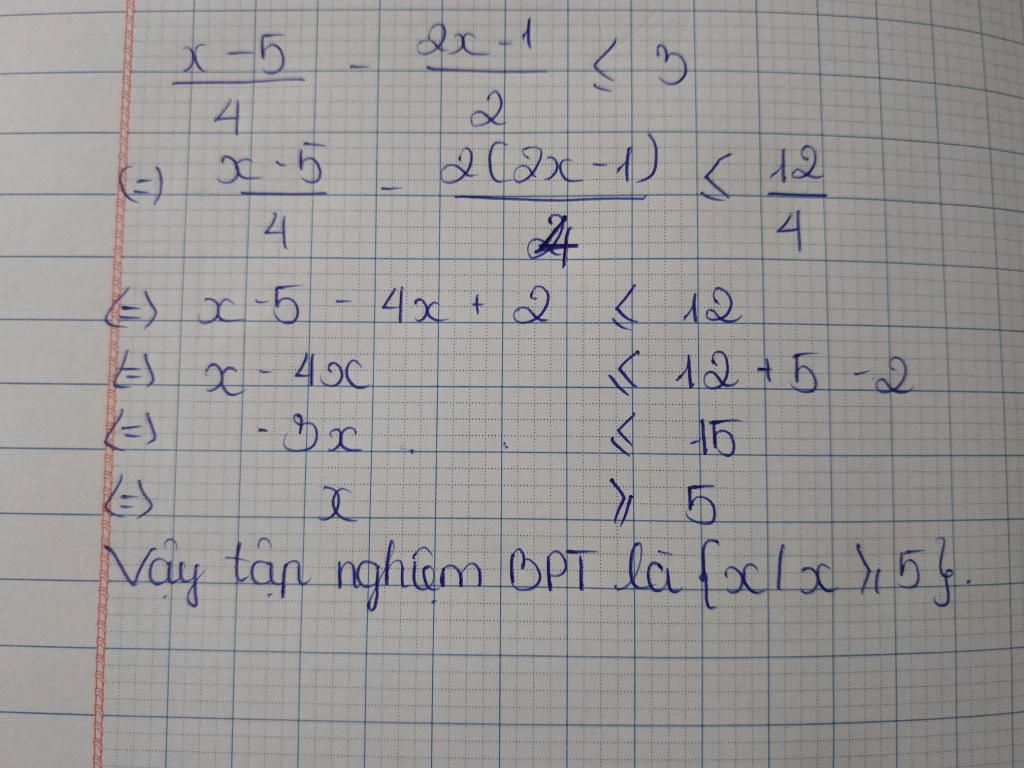 x - 5 / 4 - 2x - 1 / 2 ≤ 3
(=) x - 5 / 4 - 2(2x - 1) / 4 ≤ 12 / 4
(=) x - 5 - 4x + 2 ≤ 12
(=) x - 4x ≤ 12 + 5 - 2
(=) - 3x ≤ 15
(=) x ≥ 5
Vậy tập nghiệm BPT là {x / x ≥ 5}.